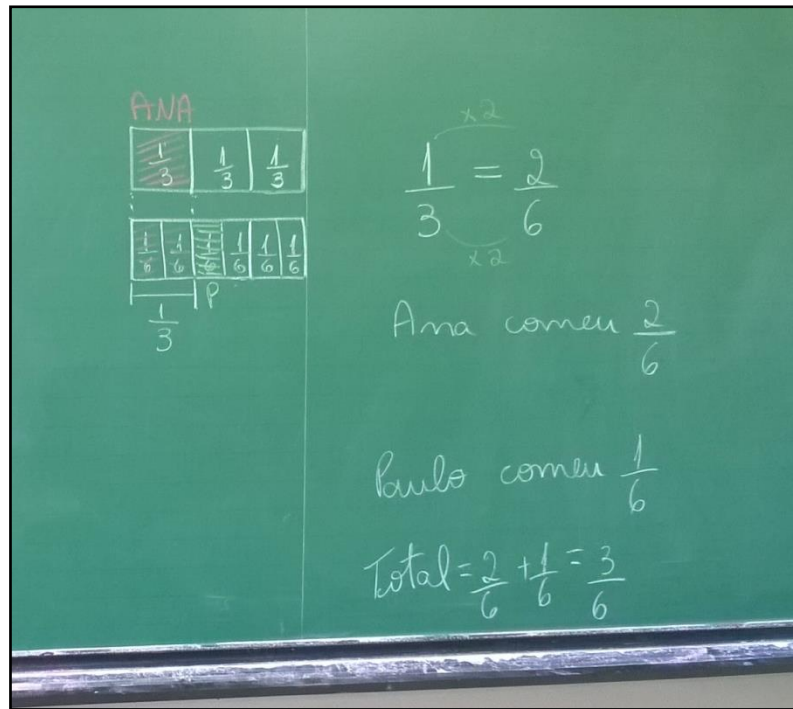 ANA
1/3 1/3 1/3
1/6 1/6 1/6 1/6 1/6 1/6
P
1/3
×2
1/3 = 2/6
×2
Ana comeu 2/6
Paulo comeu 1/6
Total = 2/6 + 1/6 = 3/6